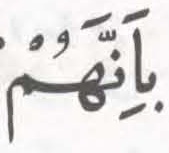 بِاَنَّهُمْ